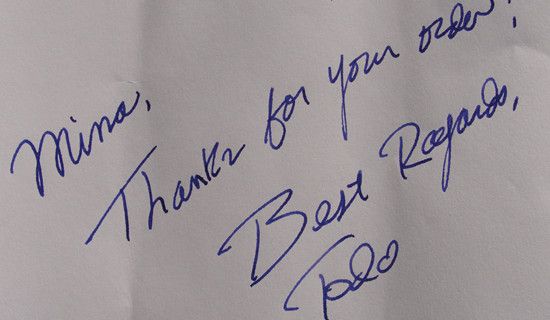 Mina,
Thanks for your order!
Best Regards,
Todo